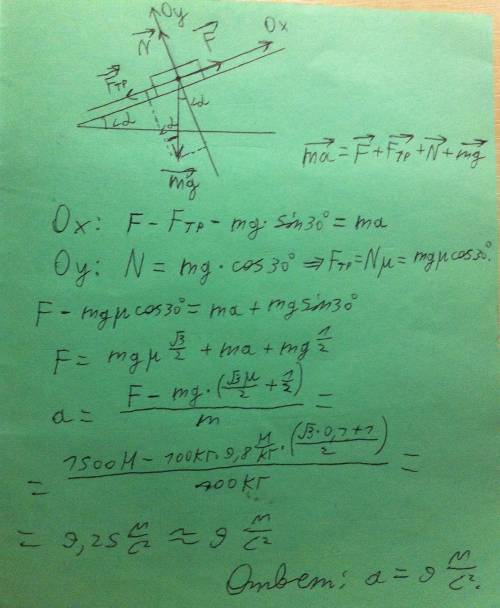 Oy
Ox
N
F
Fтр
∠α
∠α
∠α
mg
ma = F + Fтр + N + mg
Ox: F − Fтр − mg · sin30° = ma
Oy: N = mg · cos30° ⇒ Fтр = Nμ = mgμcos30°.
F − mgμcos30° = ma + mgsin30°
F = mgμ √3/2 + ma + mg 1/2
a = (F − mg · (√3μ/2 + 1/2))/m =
= (1500Н − 100кг · 9,8 м/кг · ((√3 · 0,1 + 1)/2))/100кг =
= 9,25 м/с² ≈ 9 м/с²
Ответ: a = 9 м/с².